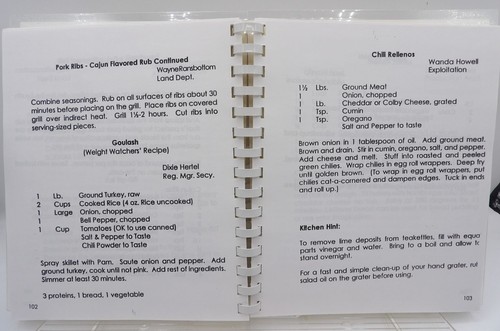 Pork Ribs - Cajun Flavored Rub Continued
WayneRansbottom
Land Dept.
Combine seasonings. Rub on all surfaces of ribs about 30
minutes before placing on the grill. Place ribs on covered
grill over indirect heat. Grill 1½-2 hours. Cut ribs into
serving-sized pieces.
Goulash
(Weight Watchers' Recipe)
Dixie Hertel
Reg. Mgr. Secy.
1 Lb. Ground Turkey, raw
2 Cups Cooked Rice (4 oz. Rice uncooked)
1 Large Onion, chopped
1 Bell Pepper, chopped
1 Cup Tomatoes (OK to use canned)
Salt & Pepper to Taste
Chili Powder to Taste
Spray skillet with Pam. Saute onion and pepper. Add
ground turkey, cook until not pink. Add rest of ingredients.
Simmer at least 30 minutes.
3 proteins, 1 bread, 1 vegetable
102
Chili Rellenos
Wanda Howell
Exploitation
1½ Lbs. Ground Meat
1 Onion, chopped
1 Lb. Cheddar or Colby Cheese, grated
1 Tsp. Cumin
1 Tsp. Oregano
Salt and Pepper to taste
Brown onion in 1 tablespoon of oil. Add ground meat.
Brown and drain. Stir in cumin, oregano, salt, and pepper.
Add cheese and melt. Stuff into roasted and peeled
green chilies. Wrap chilies in egg roll wrappers. Deep fry
until golden brown. (To wrap in egg roll wrappers, put
chilies cat-a-cornered and dampen edges. Tuck in ends
and roll up.)
Kitchen Hint:
To remove lime deposits from teakettles, fill with equal
parts vinegar and water. Bring to a boil and allow to
stand overnight.
For a fast and simple clean-up of your hand grater, rub
salad oil on the grater before using.
103